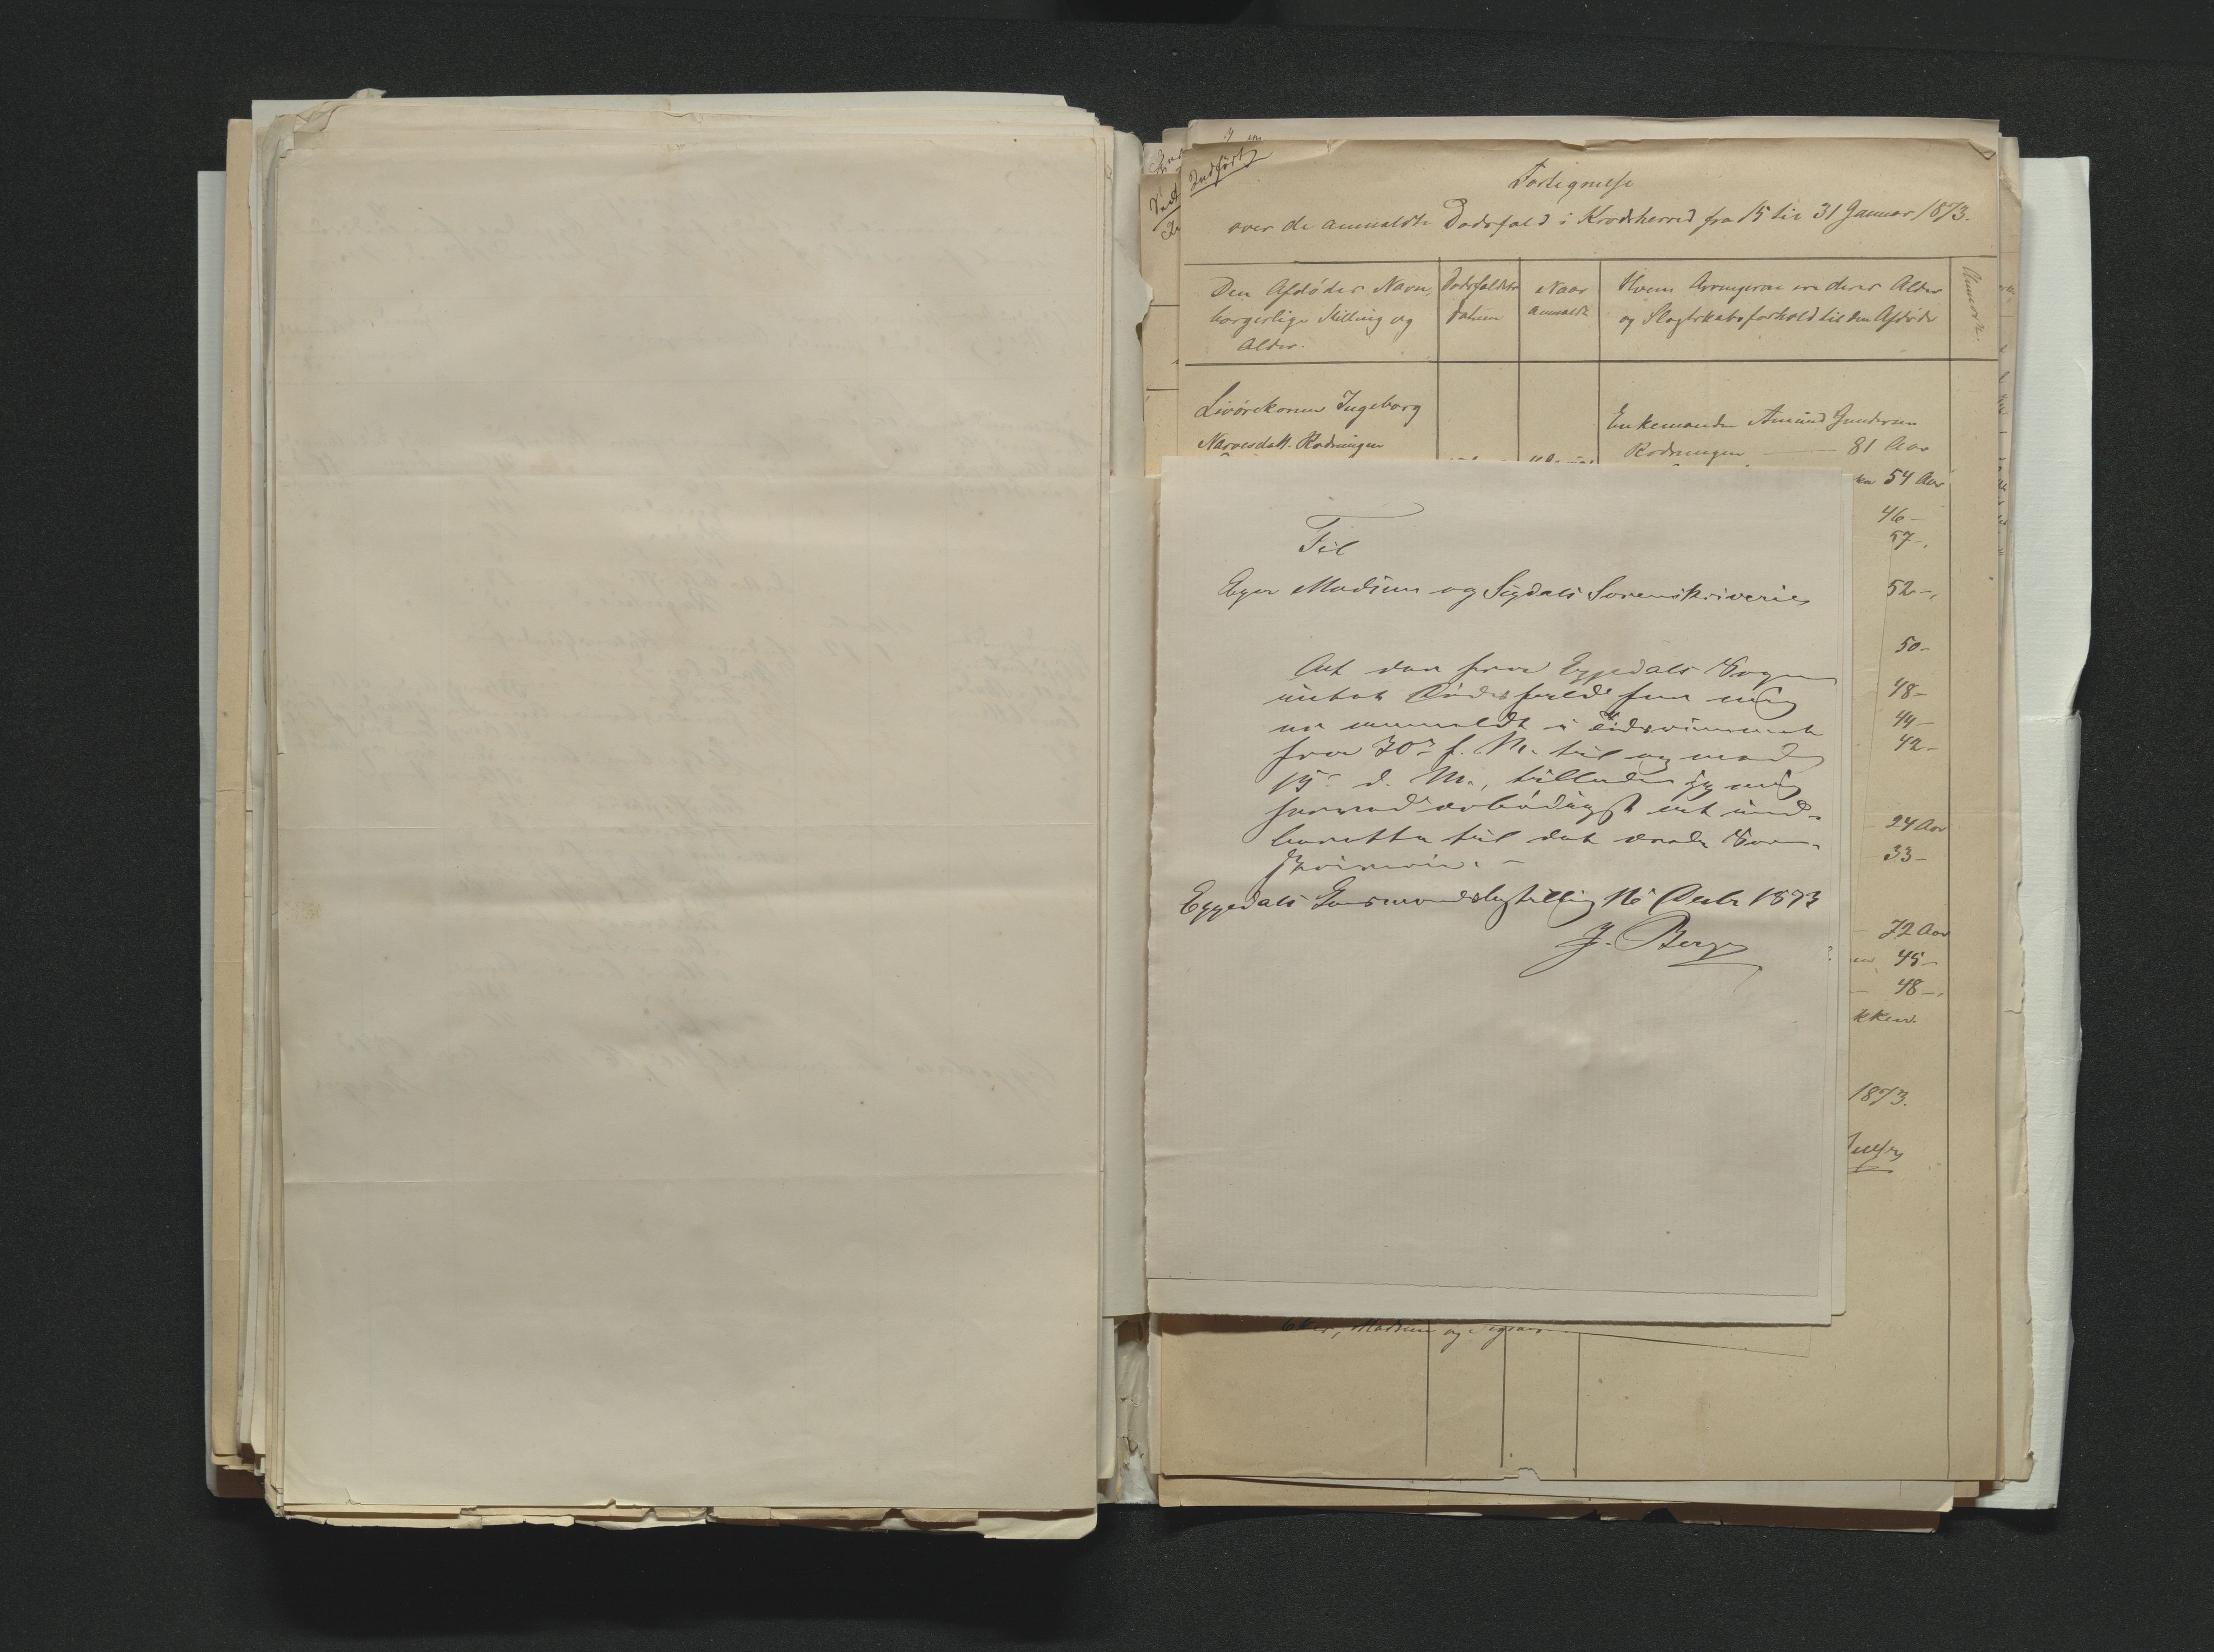 Indført
Fortegnelse
over de anmældte Dødsfald i Krødsherred fra 15 til 31 Januar 1873.
Den Afdødes Navn, borgerlige Stilling og Alder.
Dødsfaldets Datum
Naar anmældt
Hvem Arvingerne ere deres Alder og Slægtskabsforhold til den Afdøde
Anmærk.
Livørekonen Ingeborg
Narvesdatt. Rodningen
Enkemanden Amund Gundersen
Rodningen 81 Aar
54 Aar
46 -
57 -
52 -
50 -
48 -
44 -
42 -
24 Aar
33 -
72 Aar
45 -
48 -
kken.
1873.
Til
Eger Modum og Sigdals Sorenskriveri
At der fra Eggedals Sogn
intet Dødsfald for mig
er anmeldt i Tidsrummet
fra 30' f. M. til og med
15' d. M., tillader jeg mig
herved ærbødigst at ind-
berette til det ærede Soren-
skriveri. -
Eggedals Lensmandsbestilling 16 1873
J. Berg
Eker, Modum og Sigdal